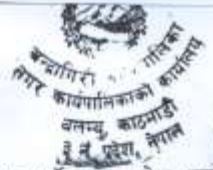 चन्द्रागिरी गरपालिका
नगर कार्यपालिकाको कार्यालय
बलम्बु, काठमाडौं
३ नं. प्रदेश, नेपाल